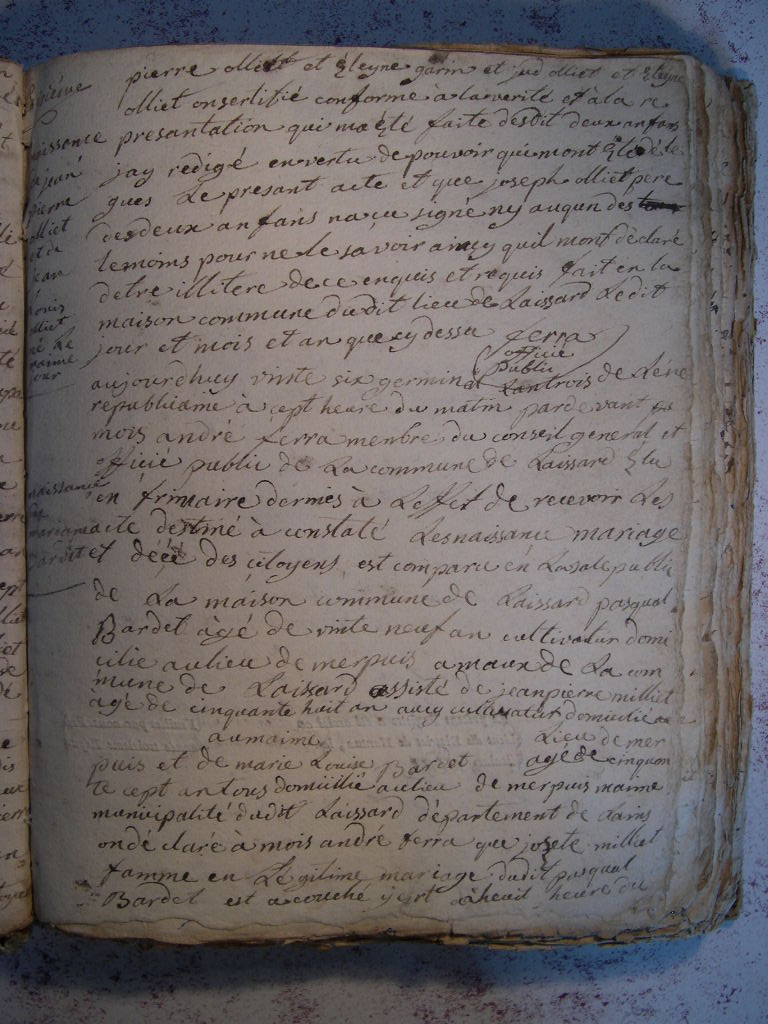 pierre olliet et Eleyne garin et jud olliet et Eleyne
olliet onsertifié conforme à la verité et à la re
presantation qui ma Eté faite desdit deux anfans
jay redigé en vertu de pouvoir qui mont Eté déle
gues Le presant acte et que joseph olliet pere
des deux anfans na çu signé ny auqun des
temoins pour ne le savoir aincy quil mont déclaré
detre illitere de ce enquis et requis fait en la
maison commune dudit lieu de Laissard Ledit
jour et mois et an que cy dessu ferra
officié
public
aujourdhuy vinte six germinal Lantrois de Lére
republiame à cept heure du matin pardevant
mois andré ferra menbre du conseil general et
officié public de La commune de Laissard Elu
en frimaire dernies à Leffet de recevoir Les
acte destiné à constaté Lesnaissance mariage
et décé des citoyens est comparu en La sale public
de La maison commune de Laissard pasqual
Bardet àgé de vinte neuf an cultivatur domi
cilie au lieu de merpuis amaux de La com
mune de Laissard assisté de jean pierre milliet
agé de cinquante huit an aucy cultivatur domicilie
au maime Lieu de mer
puis et de marie Louise Bardet agé de cinquan
te cept an tous domicillié au lieu de merpuis maime
municipalité dudit Laissard département de Lains
on déclaré à mois andré ferra que josete milliet
famme en Légitime mariage dudit pasqual
Bardet est acouché yert à heuit heure du
naissance
jean
pierra
olliet
et de
jean
Louis
olliet
né Le
maime
jour
naissance
de
mariane
Bardet